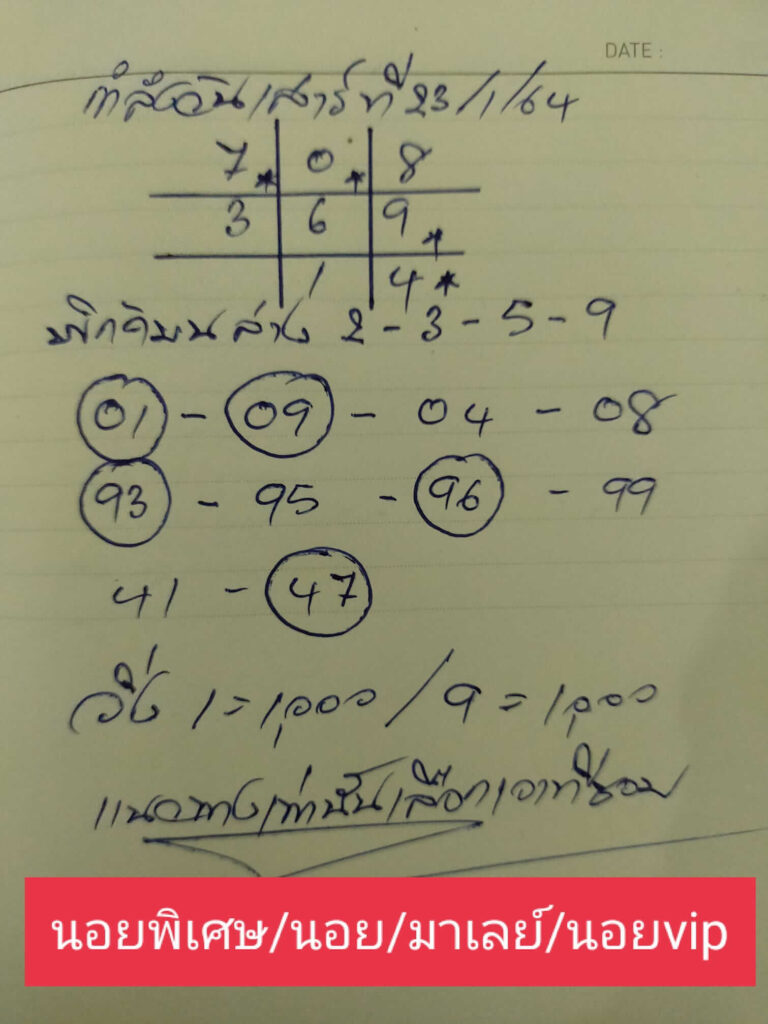 DATE :
กำลังวันเสาร์ที่ 23/1/64
7* 0* 8
3 6 9*
1 4*
บน ล่าง 2 - 3 - 5 - 9
01 - 09 - 04 - 08
93 - 95 - 96 - 99
41 - 47
วิ่ง 1 = 1,000 / 9 = 1,000
แนวทางเท่านั้นเลือกเอาที่ชอบ
นอยพิเศษ/นอย/มาเลย์/นอยvip